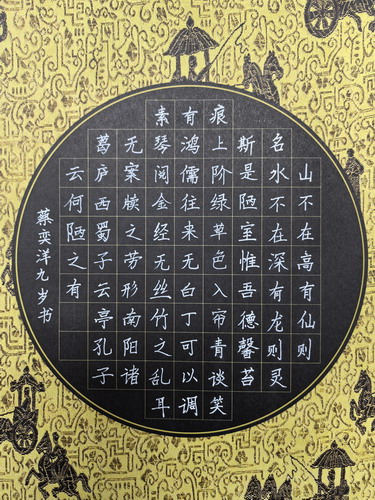 山不在高有仙则
名水不在深有龙则灵
斯是陋室惟吾德馨苔
痕上阶绿草色入帘青谈笑
有鸿儒往来无白丁可以调
素琴阅金经无丝竹之乱耳
无案牍之劳形南阳诸
葛庐西蜀子云亭孔子
云何陋之有
蔡奕洋九岁书